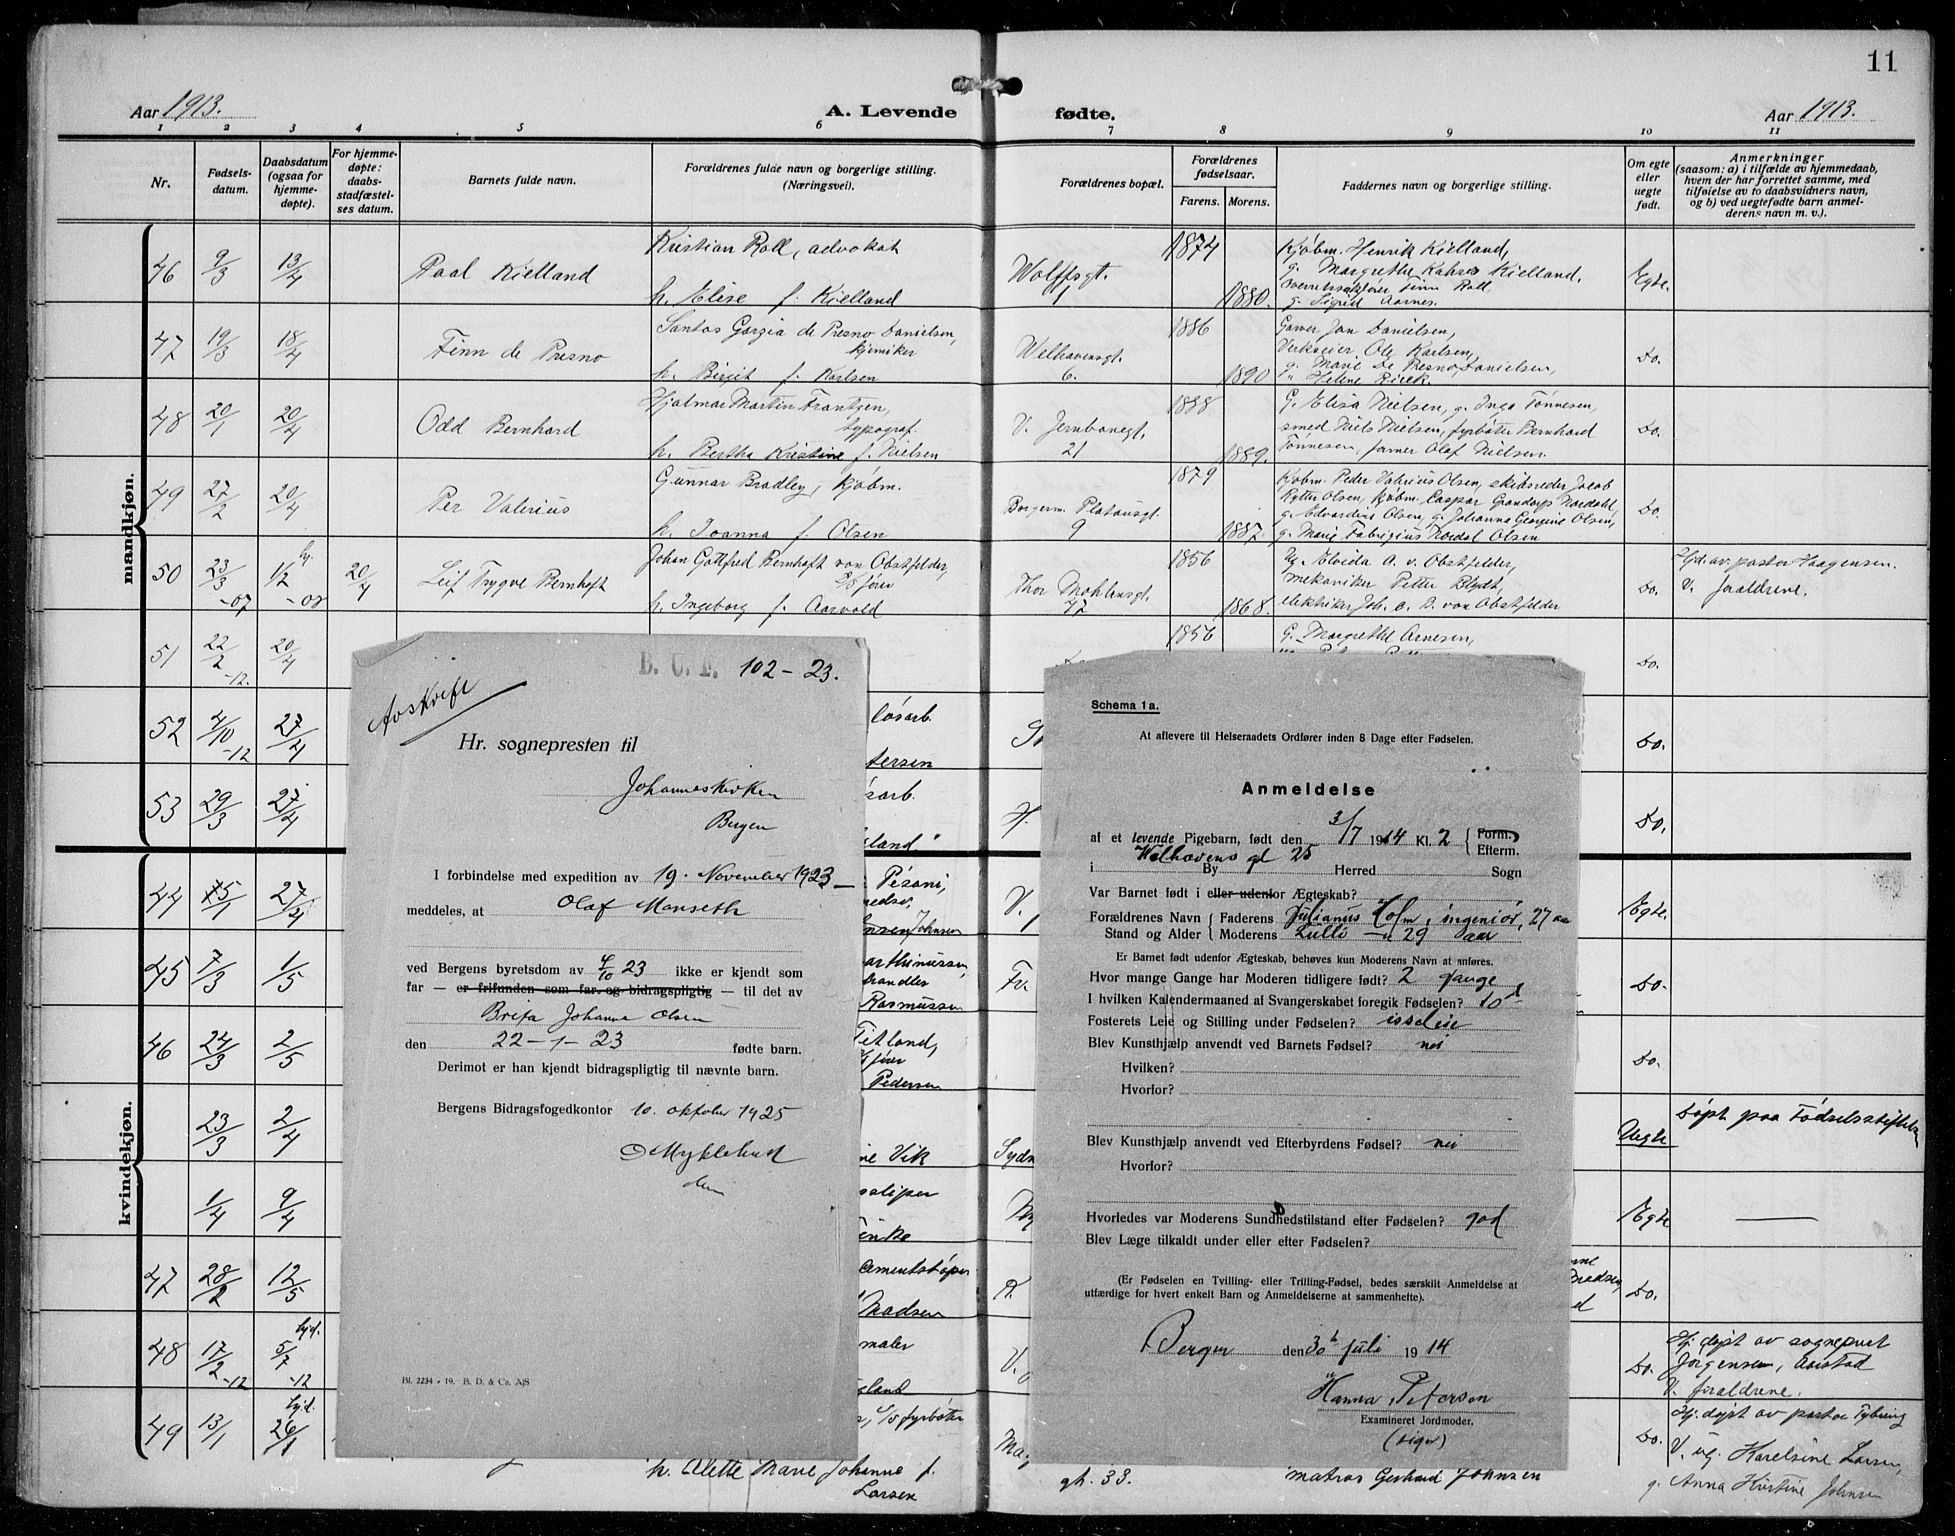 11
Aar 1913.
A. Levende fødte.
Aar 1913.
1 2 3 4 5 6 7 8 9 10 11
Nr.
Fødsels-
datum.
Daabsdatum
(ogsaa for
hjemme-
døpte).
For hjemme-
døpte:
daabs-
stadfæstel-
ses datum.
Barnets fulde navn.
Forældrenes fulde navn og borgerlige stilling.
(Næringsvei).
Forældrenes bopæl.
Forældrenes
fødselsaar.
Farens. Morens.
Faddernes navn og borgerlige stilling.
Om egte
eller
uegte
født.
Anmerkninger
(saasom: a) i tilfælde av hjemmedaab,
hvem der har forrettet samme, med
tilføielse av to daabsvidners navn,
og b) ved uegtefødte barn anmel-
derens navn m. v.).
mandkjøn.
46 9/3 13/4 Paal Kielland
Kristian Roll, advokat
h. Elise f. Kielland
Wolffsgt. 1
1874 1880.
Kjøbm. Henrik Kielland,
g. Margrethe Kahrs Kielland,
overretssakfører Finn Roll
g. Sigrid Aarnes.
Egte.
47 19/3 18/4 Finn de Presno
Santos Gorgia de Presno Danielsen,
kjemiker
h. Birgit f. Karlsen
Welhavensgt.
6.
1886 1890
Garver Jan Danielsen,
Verkseier Ole Karlsen,
g. Marie De Presno Danielsen,
" Helene Rieck.
Do.
48 20/1 20/4 Odd Bernhard
Hjalmar Martin Frantzen,
typograf.
h. Bertha Kristine f. Nielsen
V. Jernbanegt.
21
1888 1889.
G. Elisa Nielsen, g. Inga Tønnesen,
smed Niels Nielsen, fyrbøter Bernhard
Tønnesen, former Olaf Nielsen.
Do.
49 27/2 20/4 Per Valerius
Gunnar Bradley, kjøbm.
h. Joanna f. Olsen
Borgerm. Platousgt.
9
1879 1887.
Kjøbm. Peder Valerius Olsen, skibsreder Jacob
Kytter Olsen, kjøbm. Caspar Grandorp Nordahl,
g. Edvardine Olsen, g. Johanna Georgine Olsen,
g. Marie Fabrigius Nordal Olsen
Do.
50 23/3 -07 hj. 1/2 -08 20/4 Leif Trygve Bernhoft
Johan Gottfred Bernhoft von Obstfelder,
h. Ingeborg f. Aasvold
Thor Mohlensgt.
47
1856 1868.
Ug. Alvida A. v. Obstfelder,
mekaniker Petter Blydt,
elektriker Joh. C. B. von Obstfelder
Do.
Hjd. av pastor Haagensen.
V. foraldrene.
51 22/2 -12. 20/4
1856
G. Margrethe Arnesen,
Do.
52 4/10 -12 27/4
løsarb.
tersen
Do.
53 29/3 27/4
sarb.
land."
H.
Do.
kvindekjøn.
44 15/1 27/4
Pesani,
Johnsen
V.
Egte.
45 7/3 1/5
Rasmussen
Do.
46 24/3 2/5
Titland,
Pedersen
Do.
23/3 2/4
ne Vik
Sydn
Uegte
Døpt paa Fødselsstiftelsen
1/4 9/4
Egte
47 28/2 12/5
cementstøper
Madsen
Do.
48 17/2 -12 hjd. 5/7 -12
maler
land
V.
Do.
Hj. døpt av sogneprest
Jørgensen, Aarstad
V. foraldrene.
49 13/1 hjd. 26/1
fyrbøter
Do.
Hj. døpt av pastor Tybring
V. ug. Karelsine Larsen,
g. Anna Kirstine Johnsen
h. Alette Marie Johanne f.
Larsen
gt. 33.
matros Gerhard Johnsen
B. U. F. 102-23.
Avskrift
Hr. sognepresten til
Johanneskirken
Bergen
I forbindelse med expedition av 19. November 1923
meddeles, at Olaf Monseth
ved Bergens byretsdom av 4/10 23 ikke er kjendt som
far — er frifunden som far og bidragspligtig — til det av
Brita Johanne Olsen
den 22-1-23 fødte barn.
Derimot er han kjendt bidragspligtig til nævnte barn.
Bergens Bidragsfogedkontor 10. oktober 1925
Myklebust
Bl. 2234 - 19. B. D. & Co. A/S
Schema 1a.
At aflevere til Helseraadets Ordfører inden 8 Dage efter Fødselen.
Anmeldelse
af et levende Pigebarn, født den 3/7 1914 Kl. 2 Form.
Efterm.
Welhavens gt 25
i By Herred Sogn
Var Barnet født i eller udenfor Ægteskab?
Forældrenes Navn Faderens Julianus Holm, ingeniør, 27 aar
Stand og Alder Moderens Lulli — 29 aar
Er Barnet født udenfor Ægteskab, behøves kun Moderens Navn at anføres.
Hvor mange Gange har Moderen tidligere født? 2 gange
I hvilken Kalendermaaned af Svangerskabet foregik Fødselen? 10d
Fosterets Leie og Stilling under Fødselen? isseleie
Blev Kunsthjælp anvendt ved Barnets Fødsel? nei
Hvilken?
Hvorfor?
Blev Kunsthjælp anvendt ved Efterbyrdens Fødsel? nei
Hvorfor?
Hvorledes var Moderens Sundhedstilstand efter Fødselen? god
Blev Læge tilkaldt under eller efter Fødselen?
(Er Fødselen en Tvilling- eller Trilling-Fødsel, bedes særskilt Anmeldelse at
utfærdige for hvert enkelt Barn og Anmeldelserne at sammenhefte).
Bergen den 30 juli 1914
Hanna Petersen
Examineret Jordmoder.
(sign)